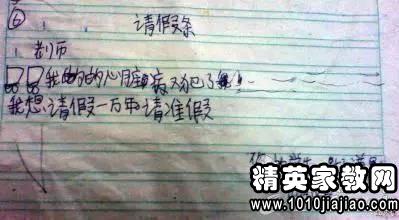 ⑥ 请假条
老师
我的的心脏病又犯了
我想请假一万年请准假
精英家教网
www.1010jiajiao.com